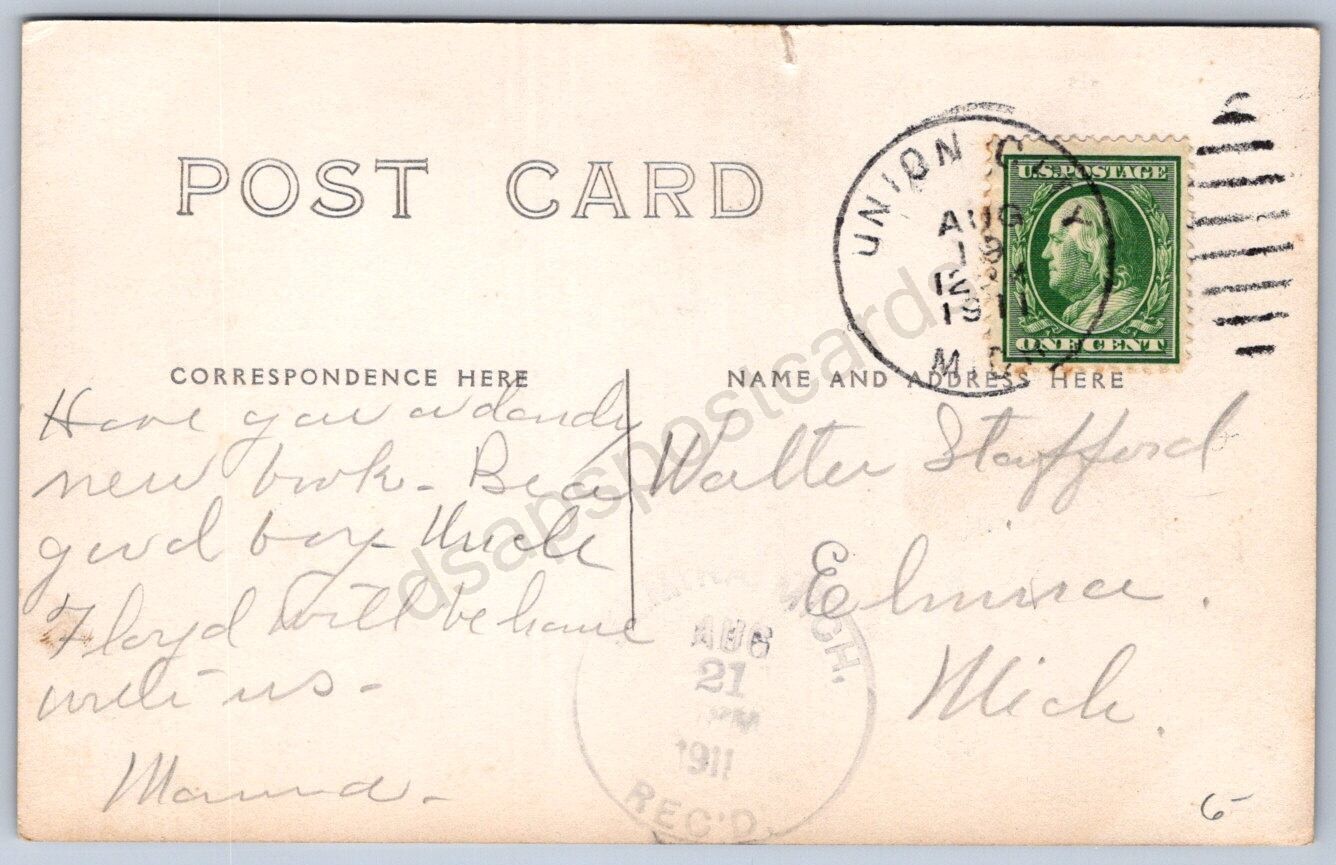 POST CARD
UNION CITY
AUG
19
12
1911
MICH
U.S. POSTAGE
ONE CENT
CORRESPONDENCE HERE
NAME AND ADDRESS HERE
Have you a dandy
new book - Be a
good boy - Uncle
Floyd will be home
with us -
Mamma -
Walter Stafford
Elmira.
Mich.
ELMIRA, MICH.
AUG
21
PM
1911
REC'D.
6-
dsapspostcards